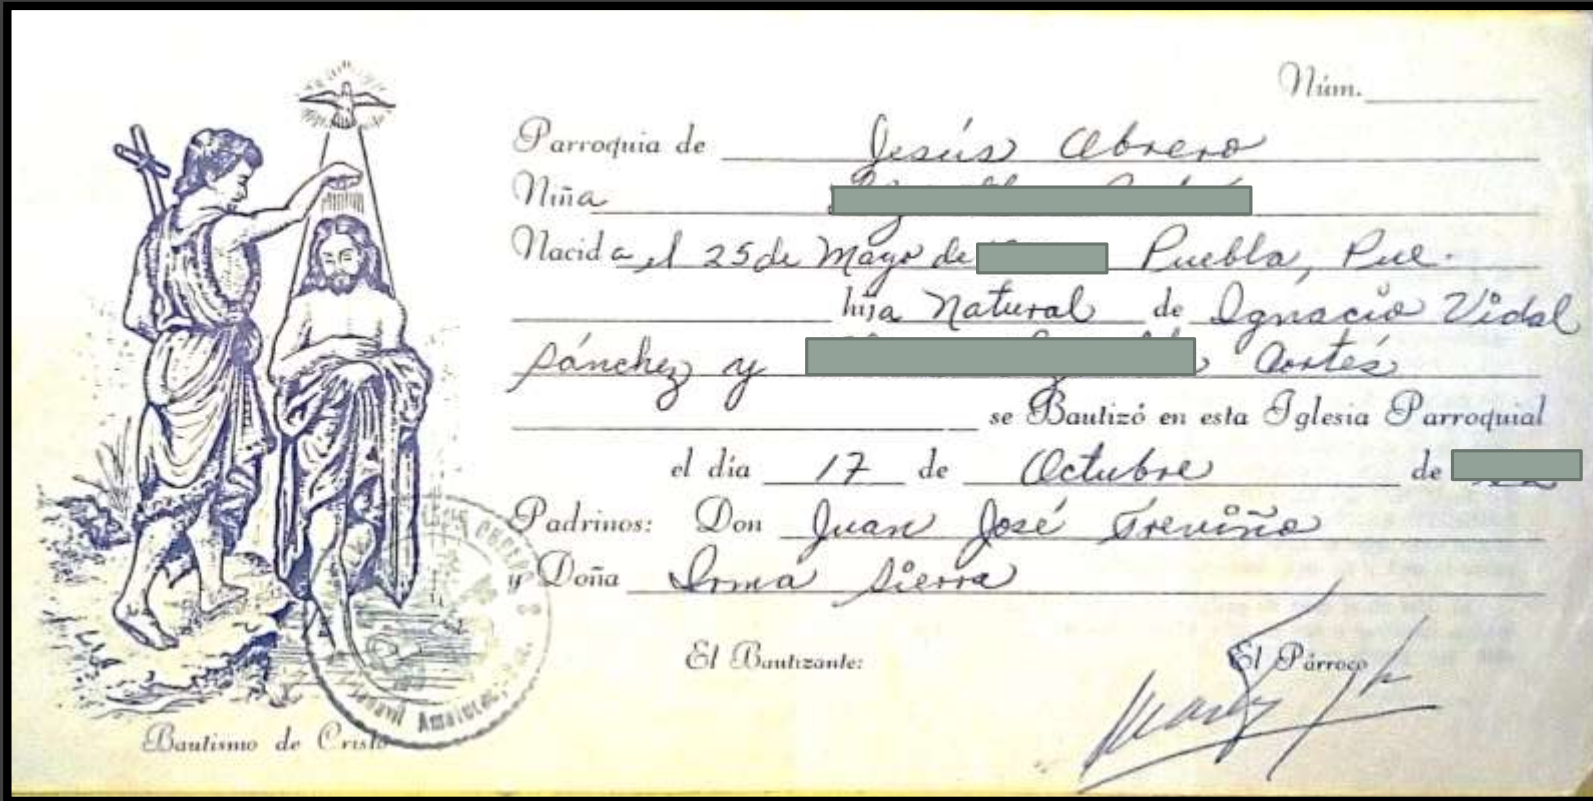 Núm.
Parroquia de Jesús Obrero
Niña
Nacida el 25 de Mayo de Puebla, Pue.
hija Natural de Ignacio Vidal
Sánchez y Cortés
se Bautizó en esta Iglesia Parroquial
el día 17 de Octubre de
Padrinos: Don Juan José Treviño
y Doña Irma Sierra
El Bautizante: El Párroco
Bautismo de Cristo